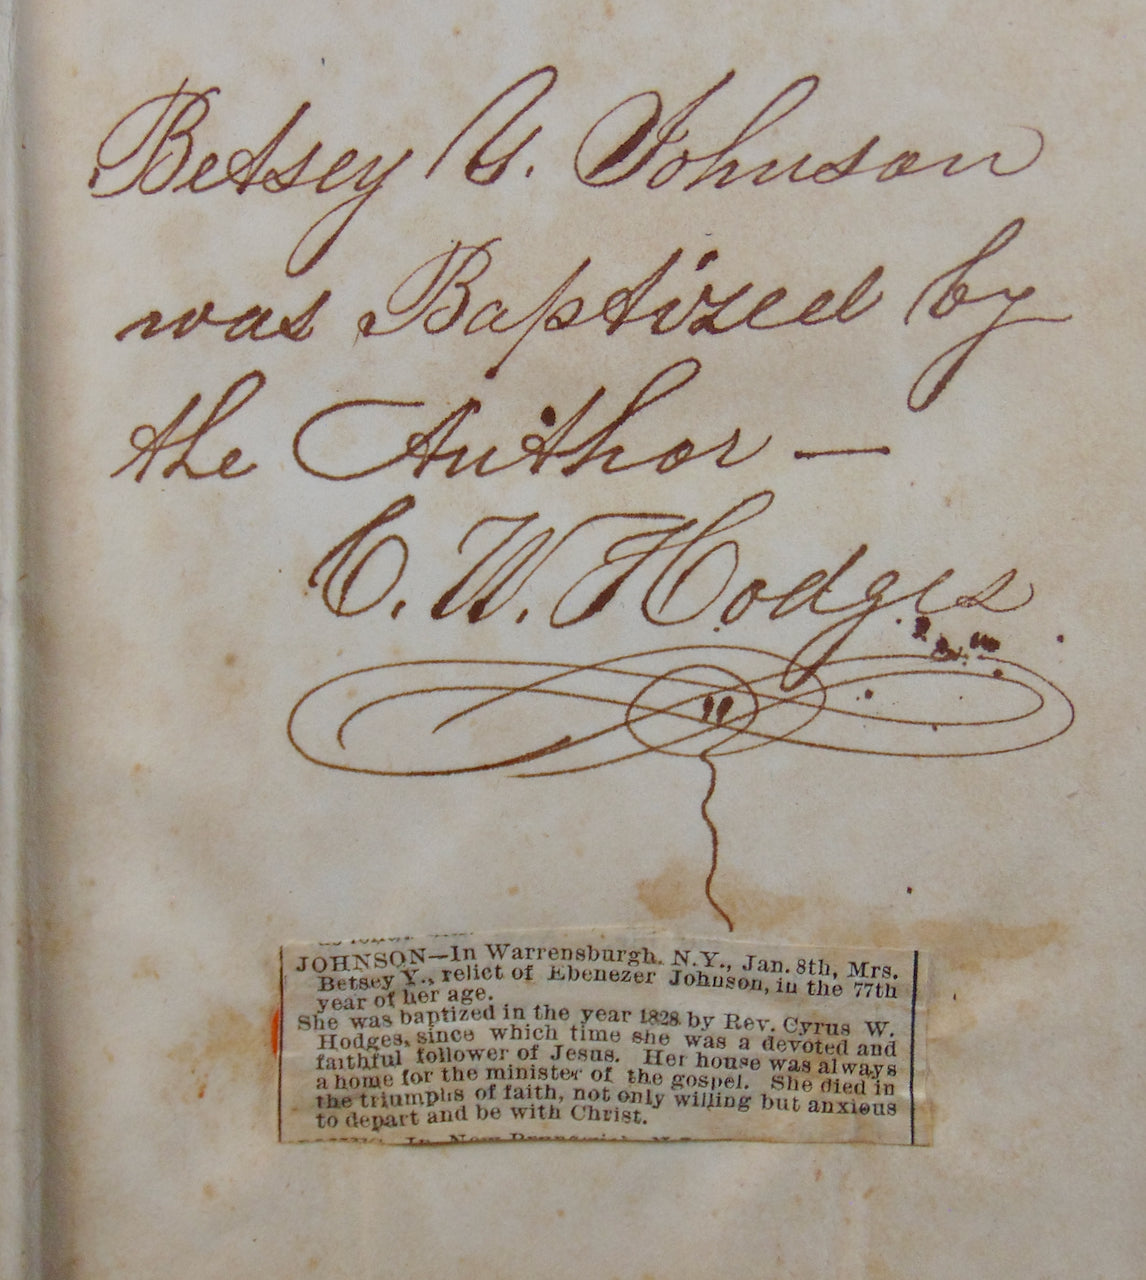 Betsey Y. Johnson
was Baptized by
the Author —
C. W. Hodges
JOHNSON—In Warrensburgh, N.Y., Jan. 8th, Mrs.
Betsey Y., relict of Ebenezer Johnson, in the 77th
year of her age.
She was baptized in the year 1828 by Rev. Cyrus W.
Hodges, since which time she was a devoted and
faithful follower of Jesus. Her house was always
a home for the minister of the gospel. She died in
the triumphs of faith, not only willing but anxious
to depart and be with Christ.
In New